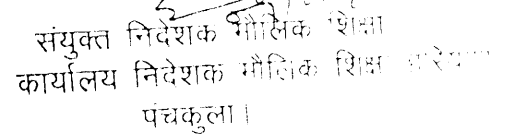 संयुक्त निदेशक मौलिक शिक्षा
कार्यालय निदेशक मौलिक शिक्षा
पंचकुला।